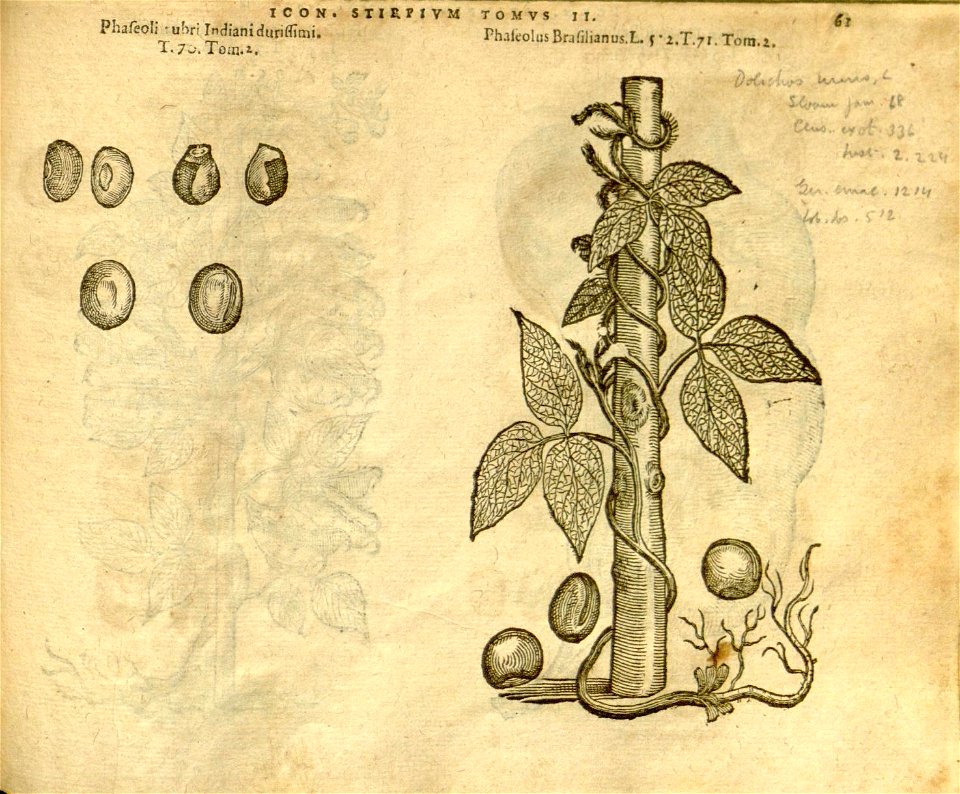 ICON. STIRPIVM TOMVS II.
61
Phaseoli rubri Indiani durissimi.
T. 70. Tom. 2.
Phaseolus Brasilianus. L. 5 2. T. 71. Tom. 2.
Dolichos L
Sloan jam. 68
Clus. exot. 336
hist. 2. 224
Ger. emac. 1214
lob. 512